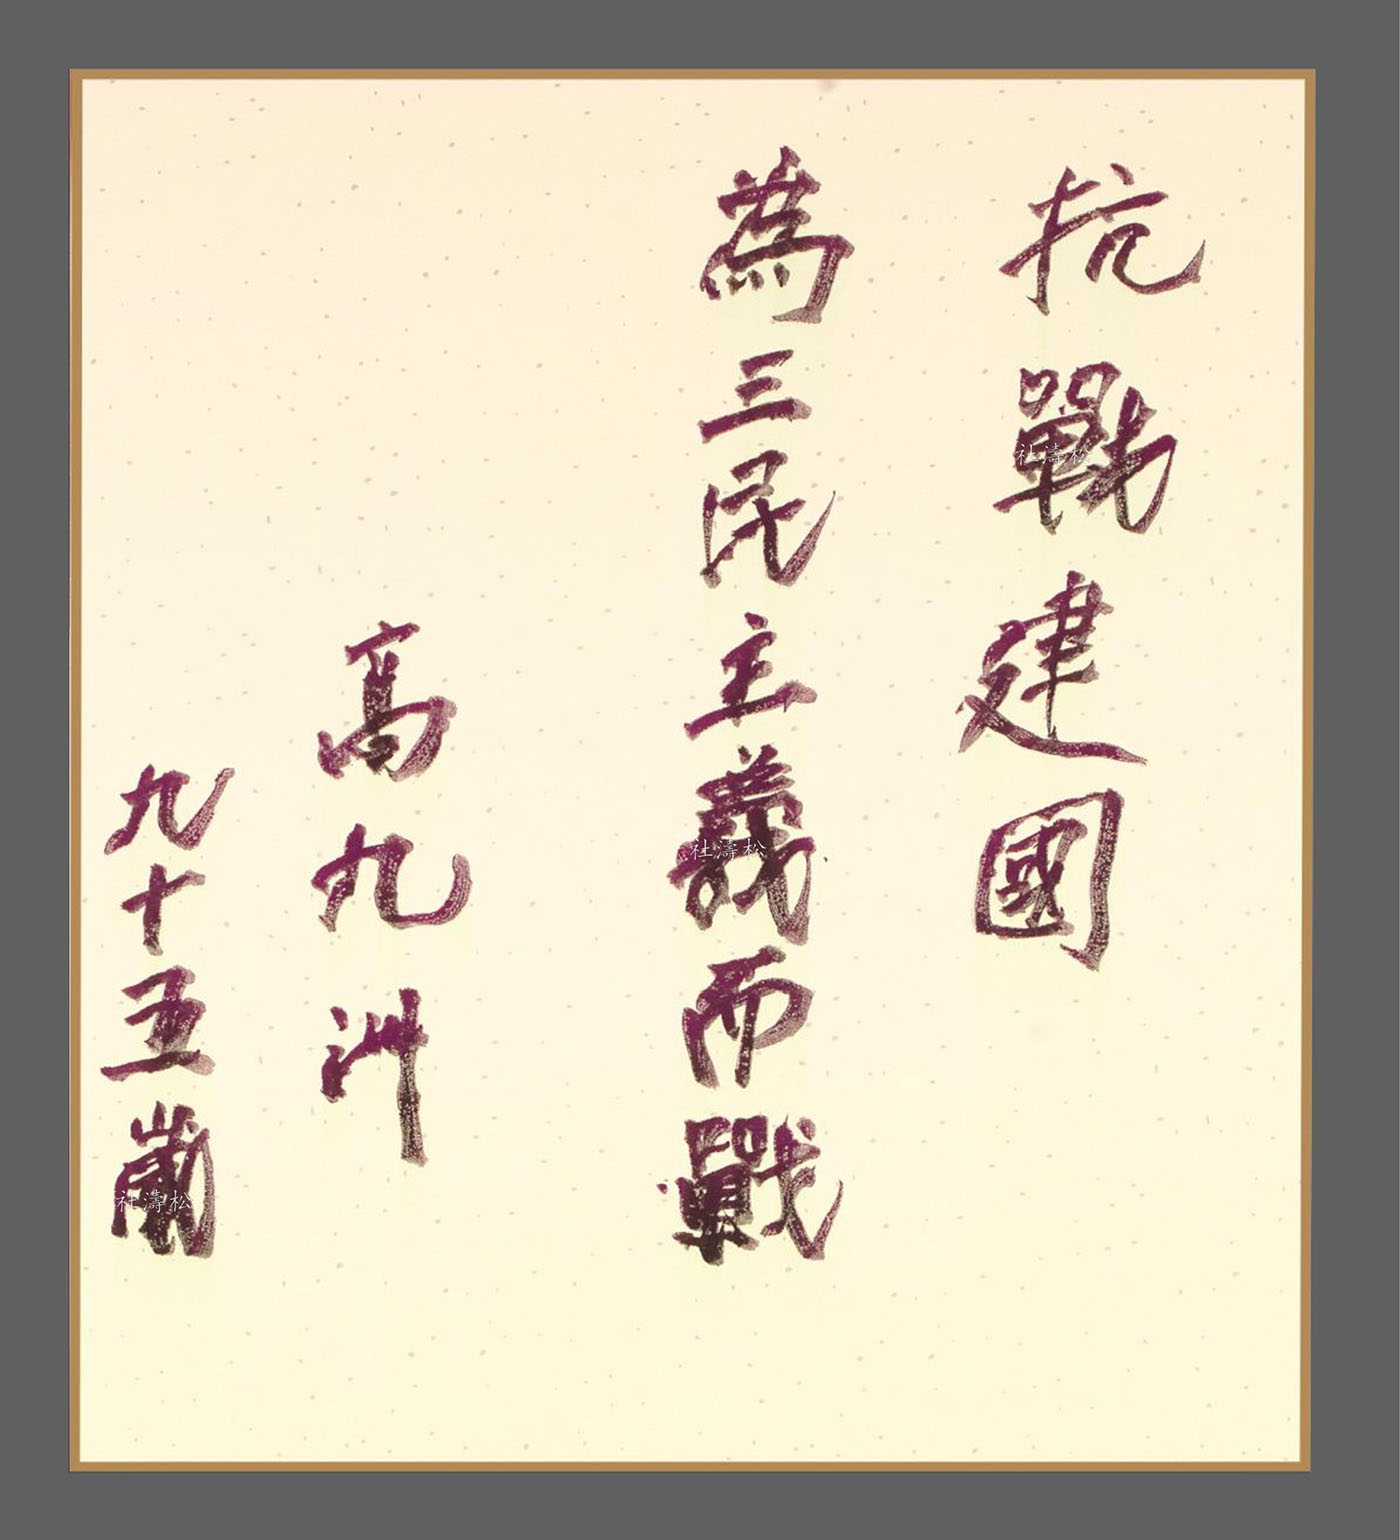 抗戰建國
為三民主義而戰
高九洲
九十五歲
社濤松
社濤松
社濤松